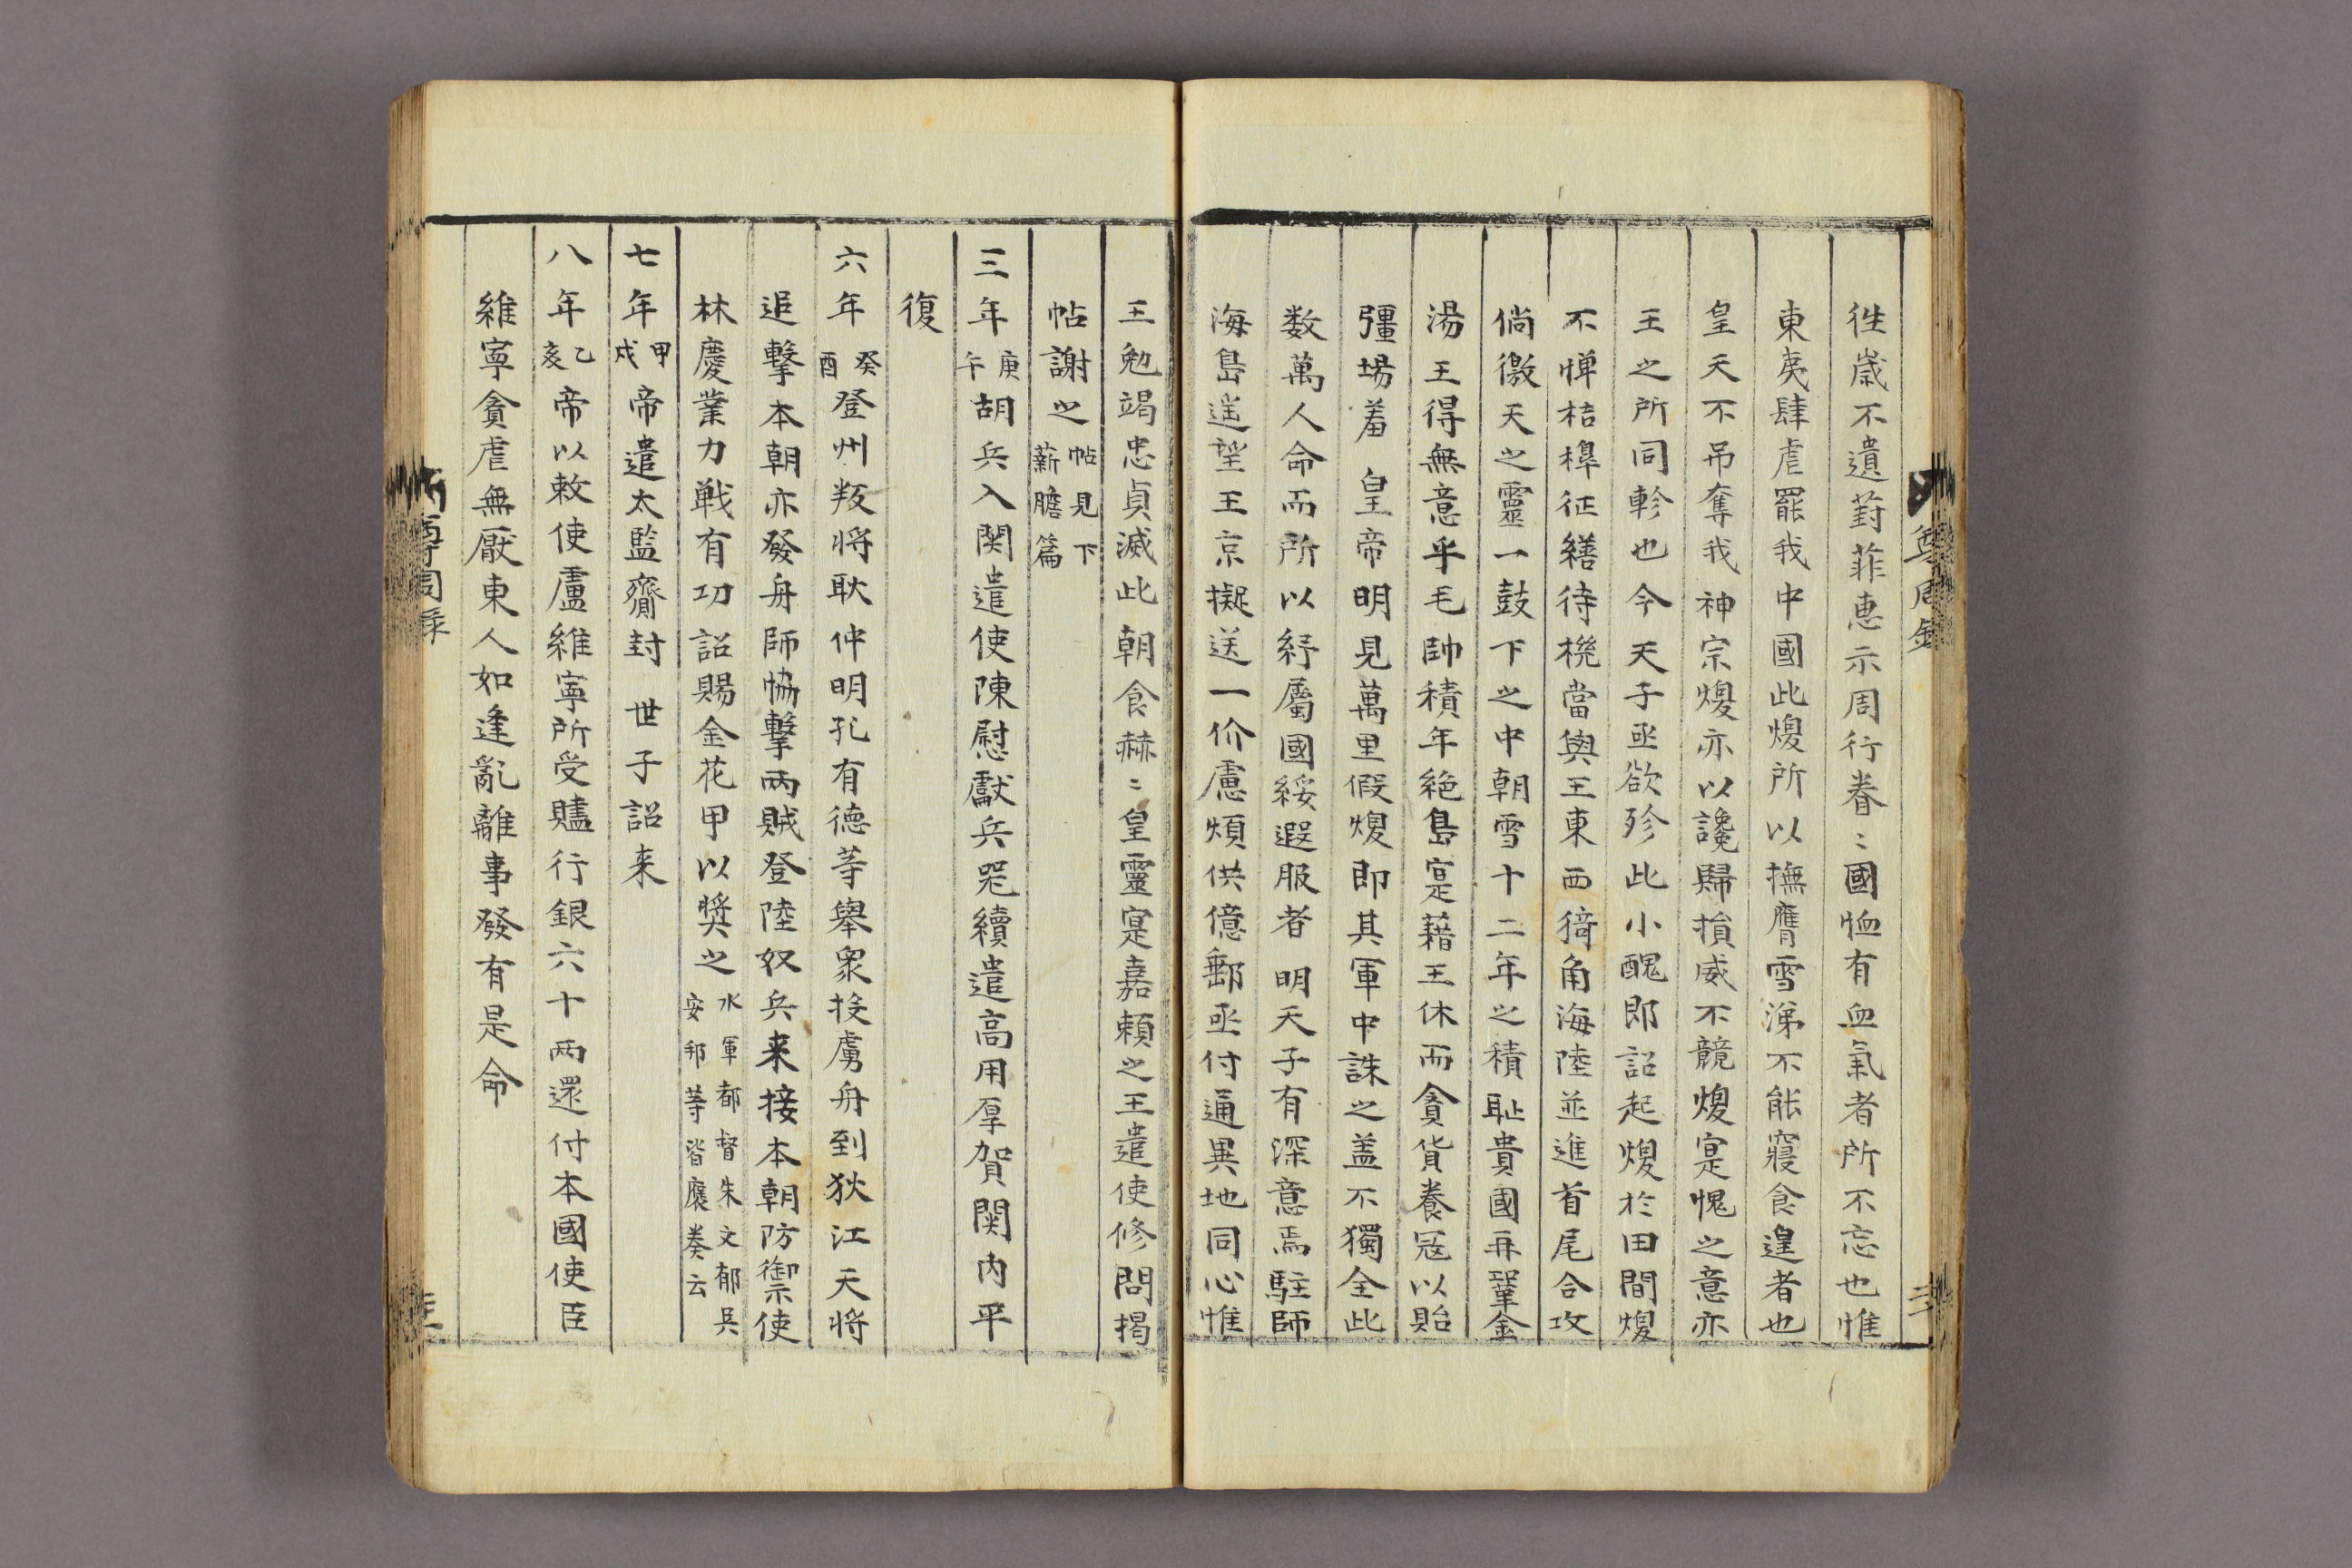 尊周錄
徃歲不遺葑菲惠示周行眷〻國恤有血氣者所不忘也惟
東夷肆虐罷我中國此煥所以撫膺雪涕不能寢食遑者也
皇天不吊奪我 神宗煥亦以讒歸損威不競煥寔愧之意亦
王之所同軫也今 天子亟欲殄此小醜郎詔起煥於田間煥
不憚桔槹征繕待機當與王東西猗角海陸並進首尾合攻
倘徼天之靈一鼓下之中朝雪十二年之積恥貴國再鞏金
湯王得無意乎毛帥積年絶島寔藉王休而貪貨養冦以貽
彊場羞 皇帝明見萬里假煥即其軍中誅之盖不獨全此
数萬人命而所以紓屬國綏遐服者 明天子有深意焉駐師
海島遥望王京擬送一价慮煩供億郵亟付通異地同心惟
王勉竭忠貞滅此朝食赫〻皇靈寔嘉頼之王遣使修問揭
帖謝之帖見下薪膽篇
三年庚午胡兵入関遣使陳慰獻兵器續遣高用厚賀関内平
復
六年癸酉登州叛将耿仲明孔有德等舉衆投虜舟到狄江天将
追擊本朝亦發舟師恊擊兩賊登陸奴兵来接本朝防禦使
林慶業力戦有功詔賜金花甲以奬之水軍都督朱文郁吳安邦等咨廩奏云
七年甲戌帝遣太監齎封 世子詔来
八年乙亥帝以敕使盧維寧所受贐行銀六十兩還付本國使臣
維寧貪虐無厭東人如逢亂離事發有是命
尊周录